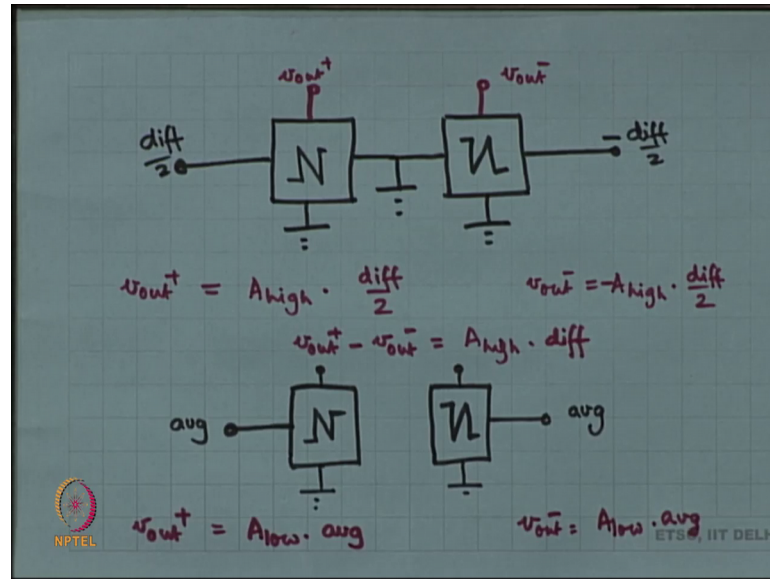 vout+ vout-
diff/2 N И - diff/2
vout+ = Ahigh · diff/2 vout- = -Ahigh · diff/2
vout+ - vout- = Ahigh · diff
avg N И avg
vout+ = Alow · avg vout- = Alow · avg
NPTEL
ETSC, IIT DELH